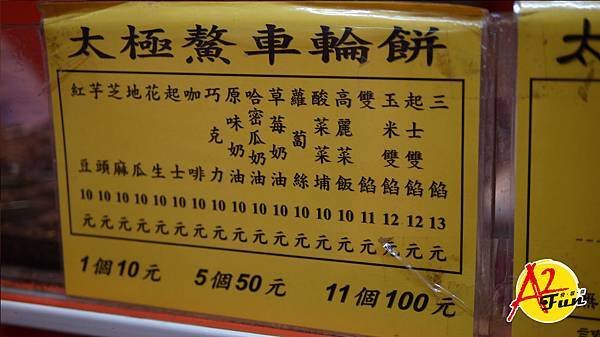 太極鰲車輪餅
紅豆 10元
芋頭 10元
芝麻 10元
地瓜 10元
花生 10元
起士 10元
咖啡 10元
巧克力 10元
原味奶油 10元
哈密瓜奶油 10元
草莓奶油 10元
蘿蔔絲 10元
酸菜菜埔 10元
高麗菜飯 10元
雙餡 11元
玉米雙餡 12元
起士雙餡 12元
三餡 13元
1個10元 5個50元 11個100元
太
A2 Fun